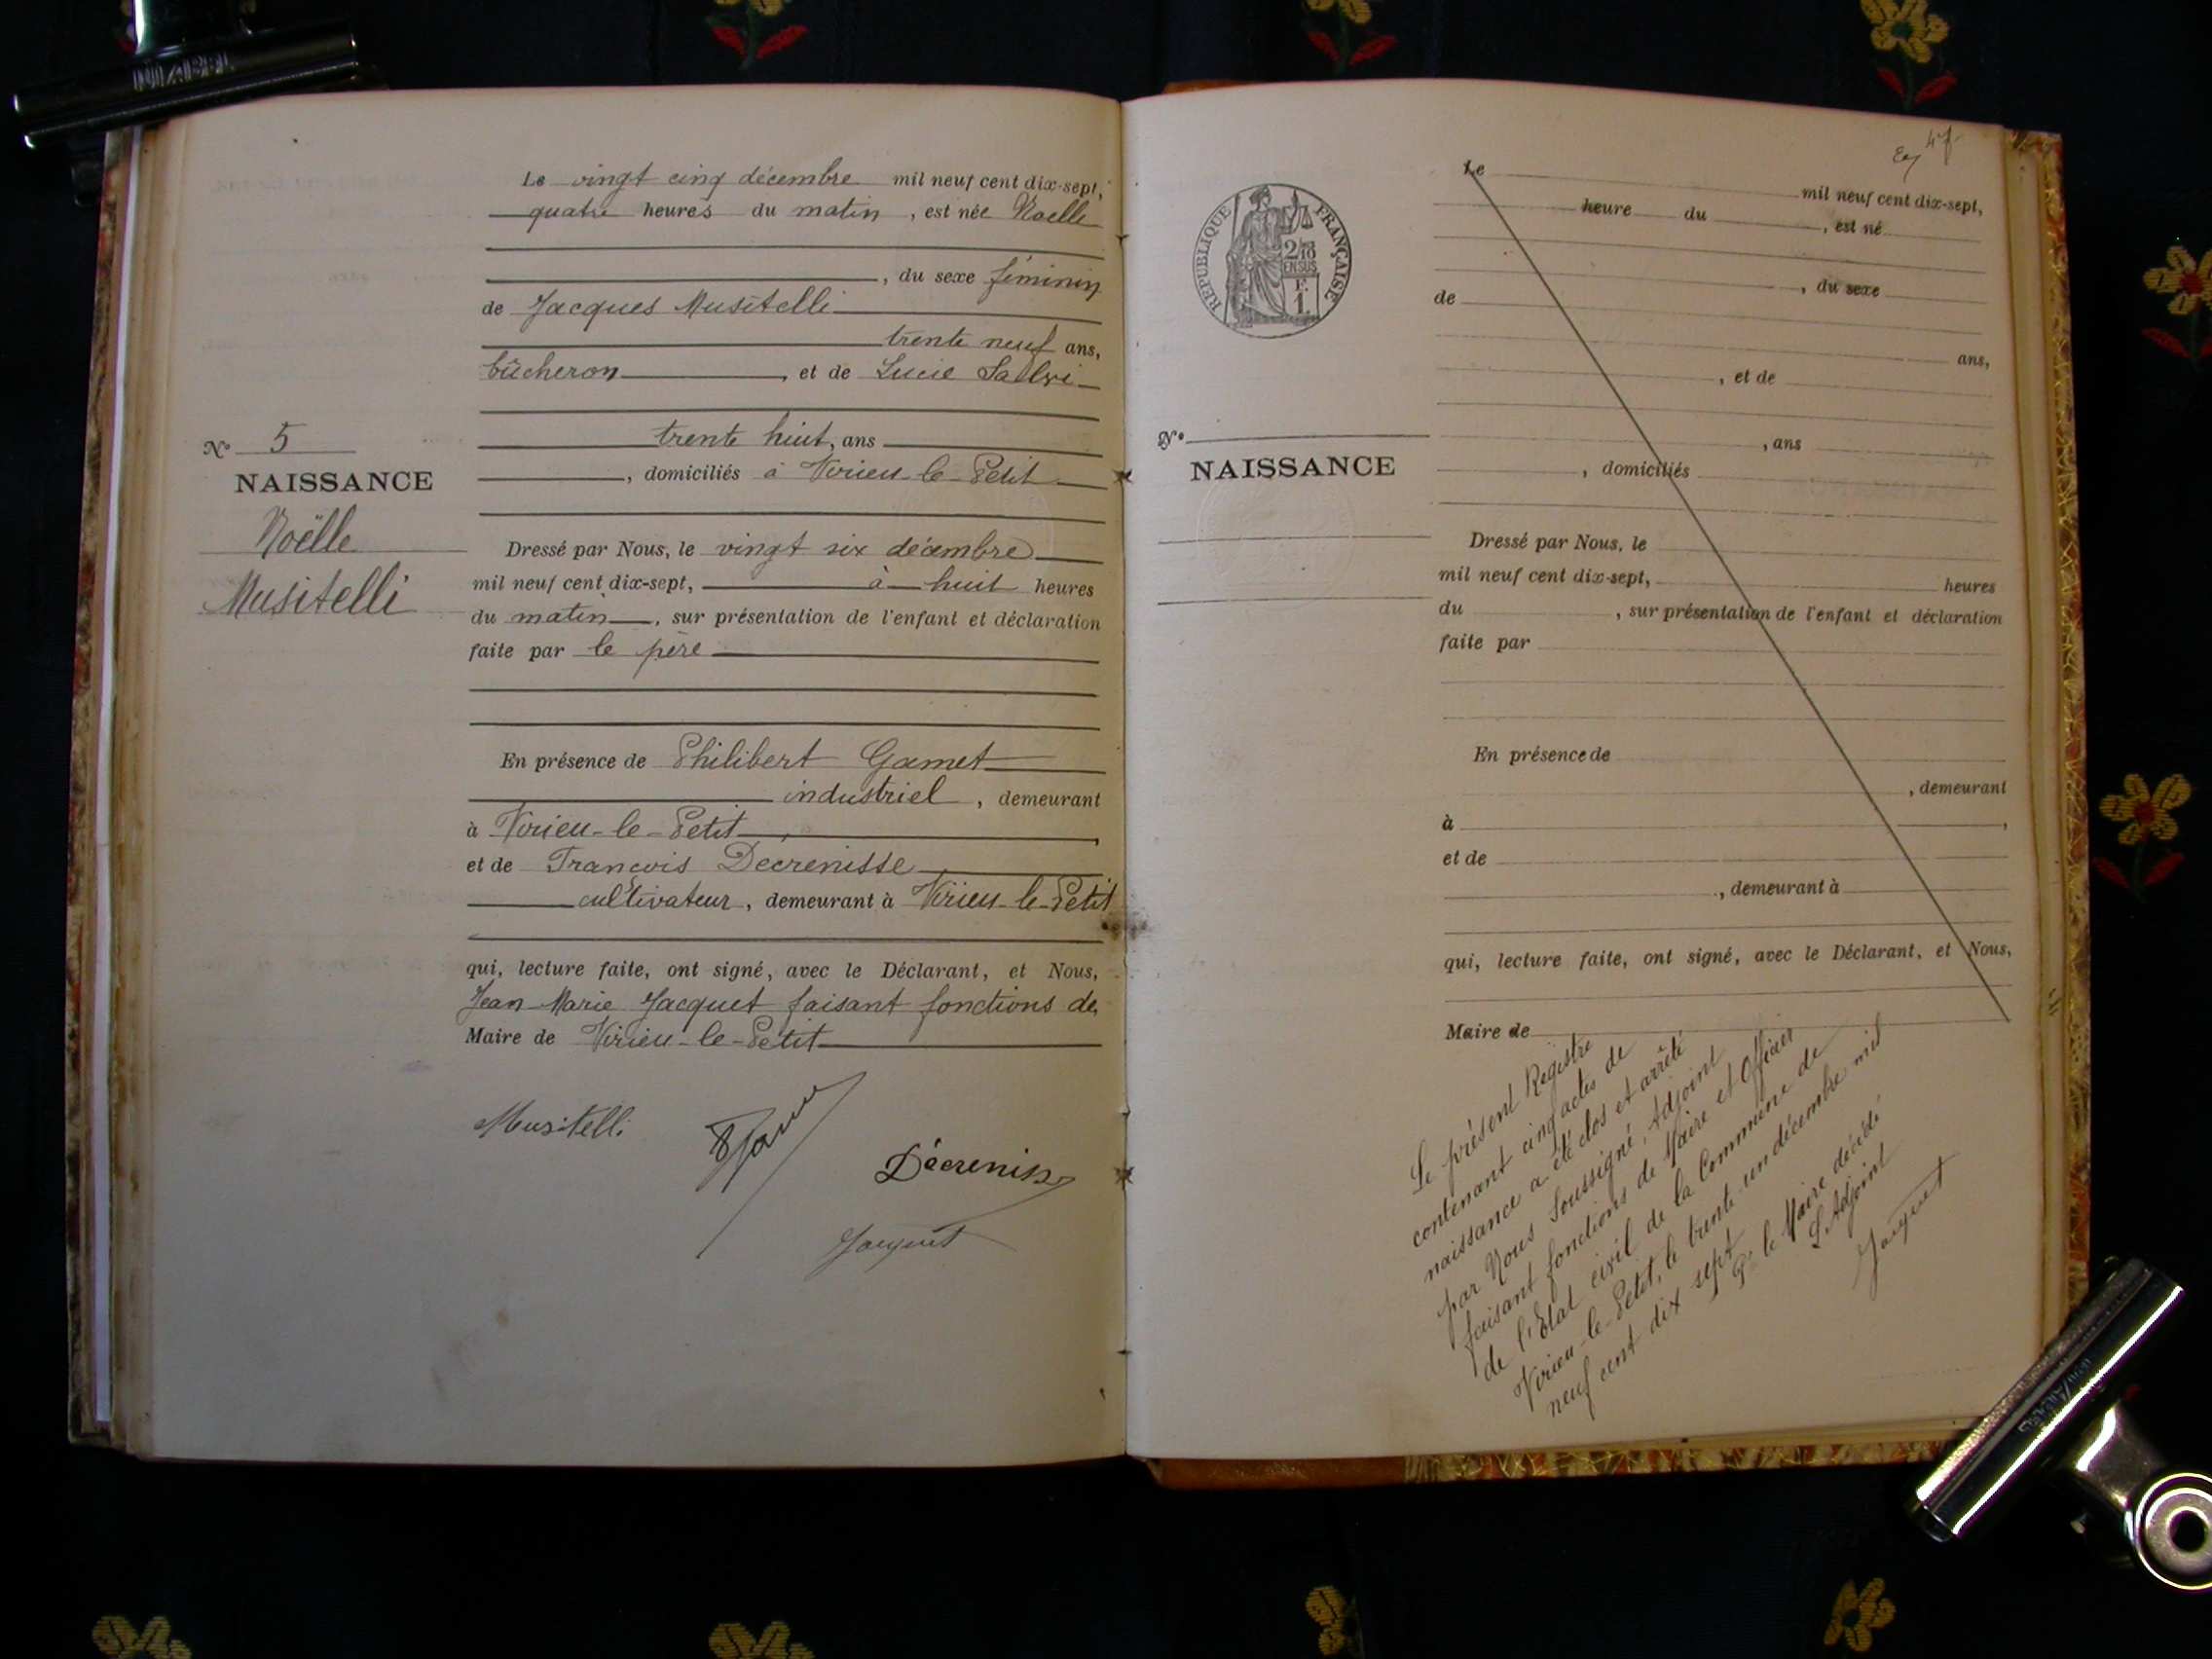 Le vingt cinq décembre mil neuf cent dix-sept,
quatre heures du matin, est née Noelle
, du sexe féminin
de Jacques Musitelli
trente neuf ans,
bûcheron, et de Lucie Salvi
trente huit, ans
, domiciliés à Virieu-le-Petit
N° 5
NAISSANCE
Noëlle
Musitelli
Dressé par Nous, le vingt six décembre
mil neuf cent dix-sept, à huit heures
du matin, sur présentation de l'enfant et déclaration
faite par le père
En présence de Philibert Gamet
industriel, demeurant
à Virieu-le-Petit,
et de François Décrenisse
cultivateur, demeurant à Virieu-le-Petit
qui, lecture faite, ont signé, avec le Déclarant, et Nous,
Jean-Marie Jacquet faisant fonctions de
Maire de Virieu-le-Petit
Musitelli
Décreniss
Jacquet
47
REPUBLIQUE FRANÇAISE
2/10
EN SUS
F.
1.
Le mil neuf cent dix-sept,
heure du , est né
, du sexe
de
ans,
, et de
, ans
, domiciliés
N°
NAISSANCE
Dressé par Nous, le
mil neuf cent dix-sept, heures
du , sur présentation de l'enfant et déclaration
faite par
En présence de
, demeurant
à ,
et de
, demeurant à
qui, lecture faite, ont signé, avec le Déclarant, et Nous,
Maire de
Le présent Registre
contenant cinq actes de
naissance a été clos et arrêté
par Nous Soussigné, Adjoint
faisant fonctions de Maire et Officier
de l'Etat civil de la Commune de
Virieu-le-Petit, le trente-un décembre mil
neuf cent dix sept
Pr le Maire décédé
L'Adjoint
Jacquet